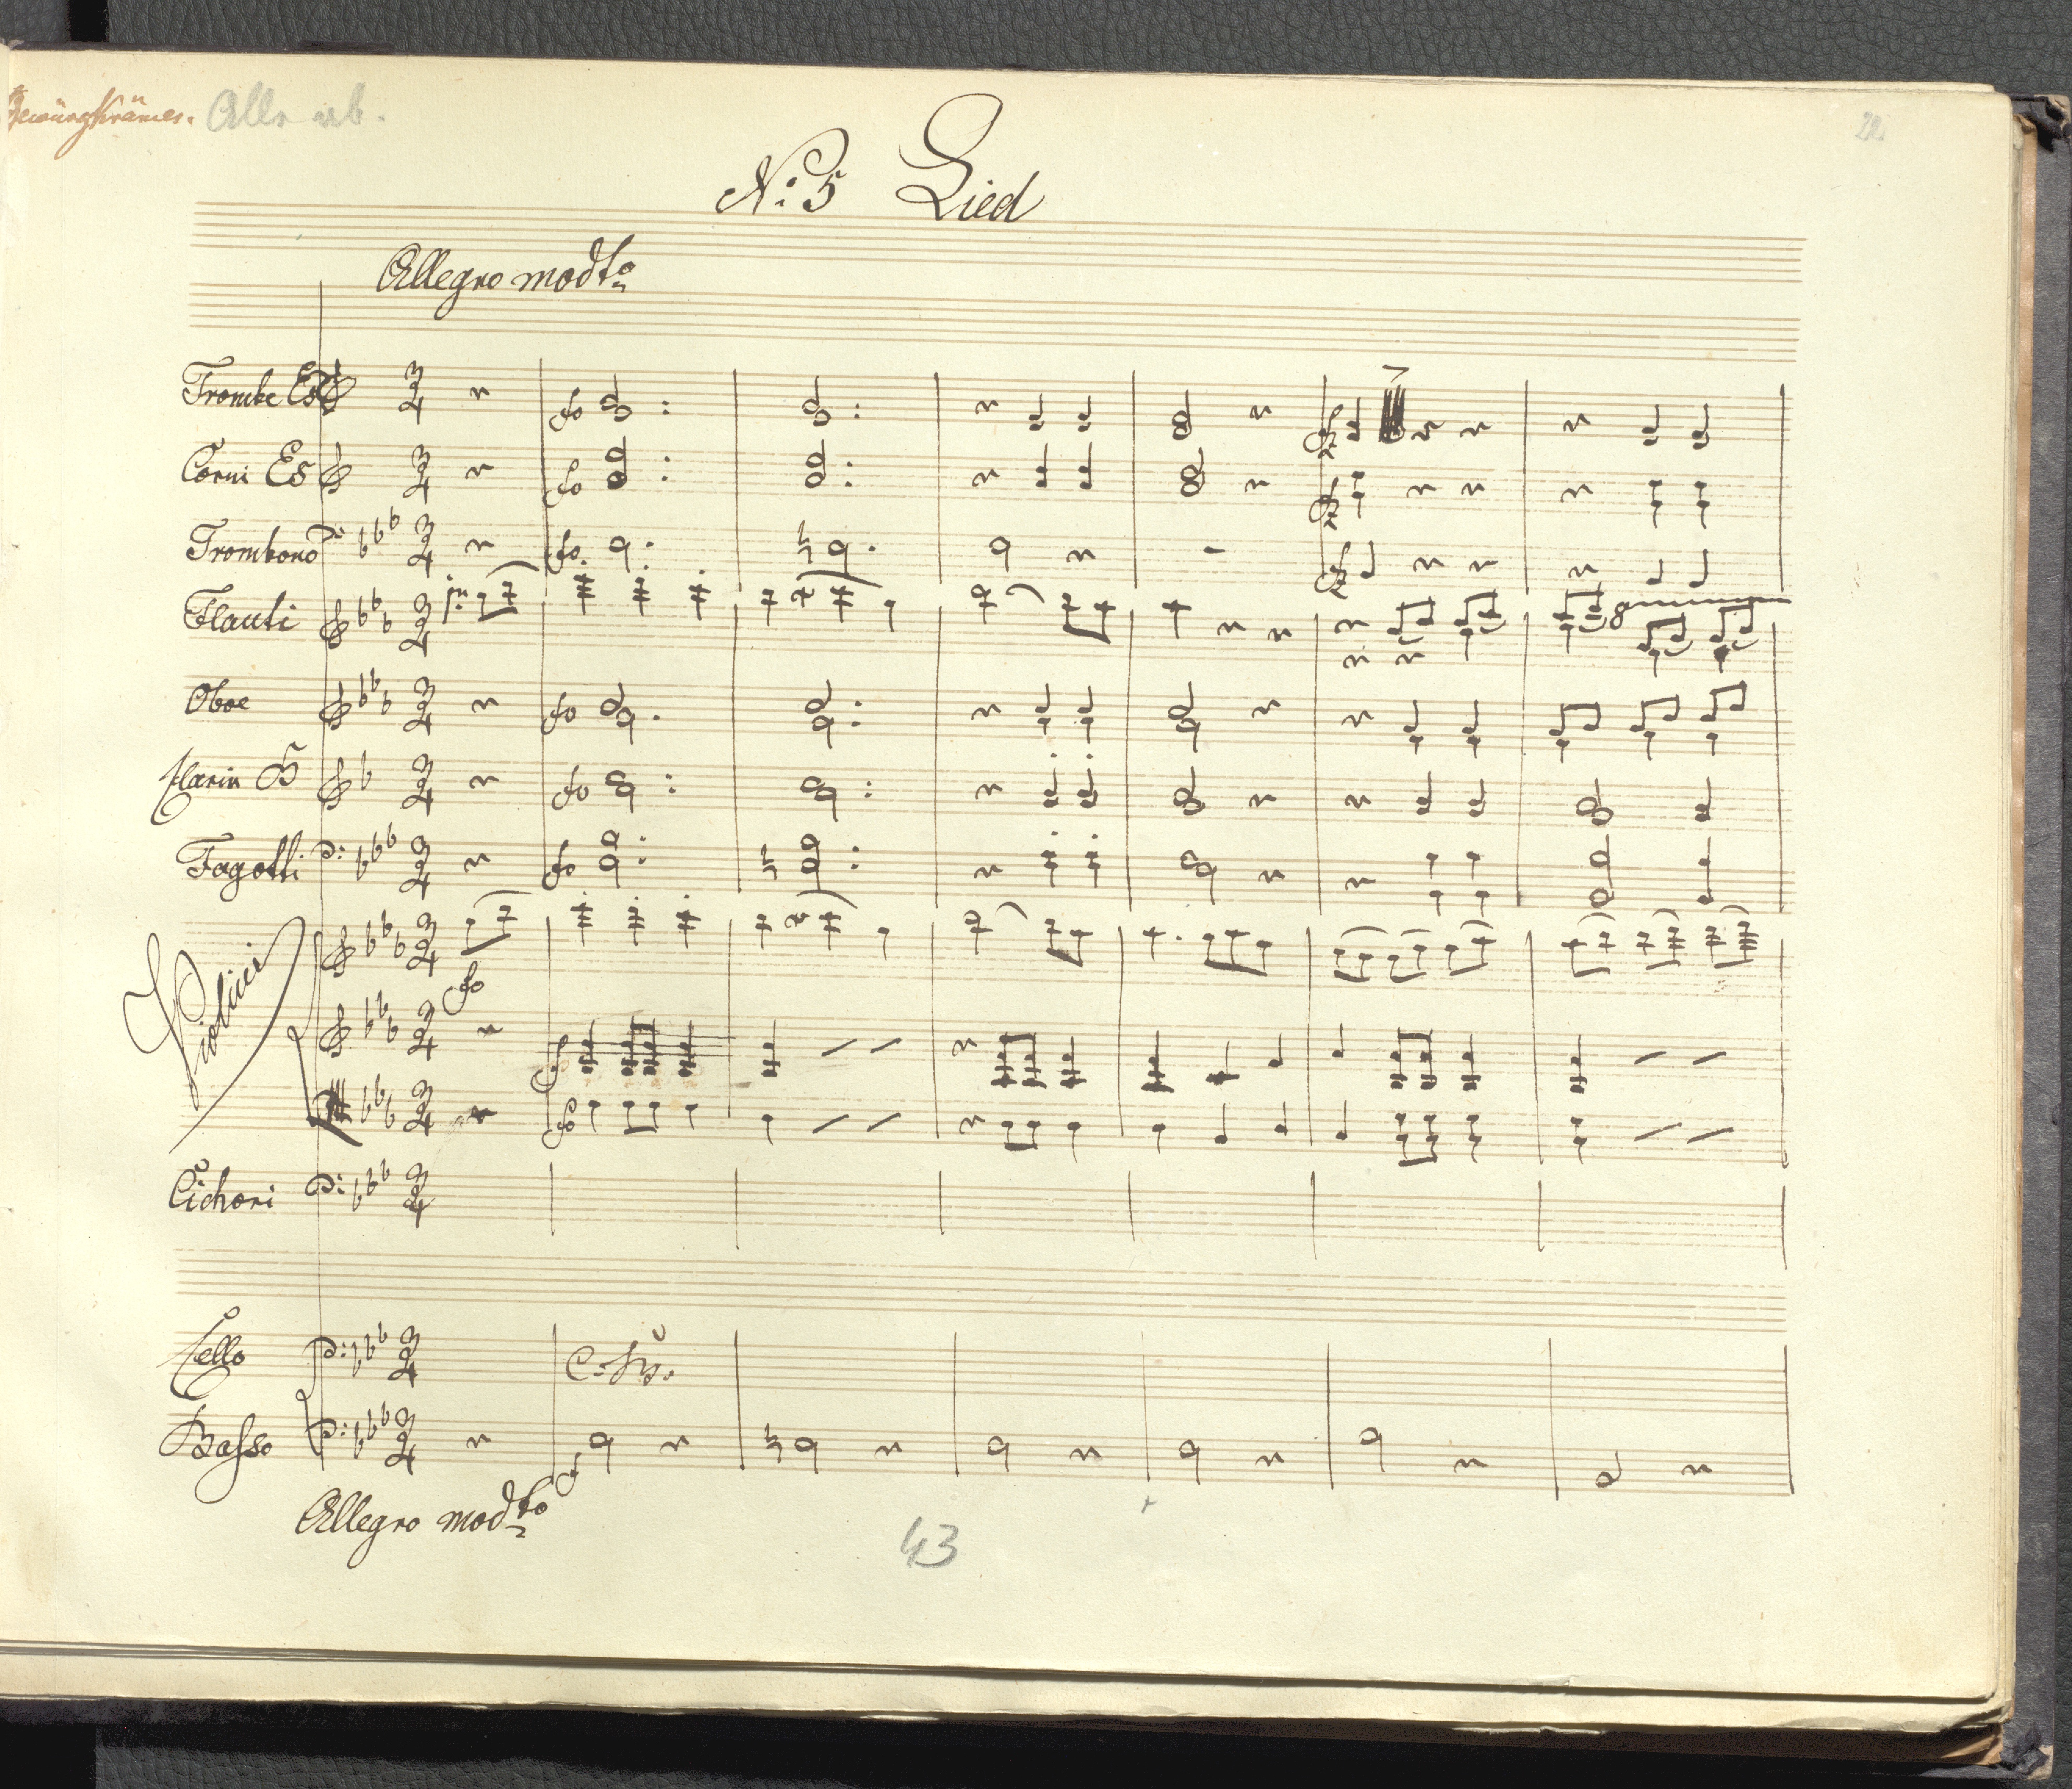 Gewürzkrämer. Alle ab.
22
N: 5 Lied
Allegro modto
Trombe Es
Corni Es
Trombono
Flauti
8
Oboe
Clarin B
Fagotti
Violini
Cichori
Cello
C. B.
Basso
Allegro modto
43